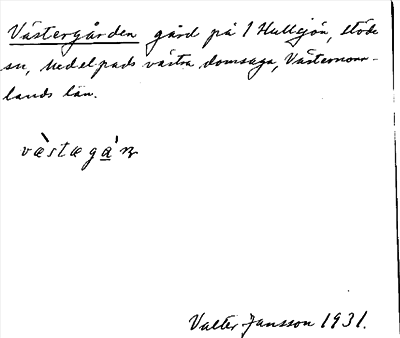 Västergården gård på 1 Hullsjön, Stöde
sn, Medelpads västra domsaga, Västernorr-
lands län.
væ̀stægå̀ɳ
Valter Jansson 1931.